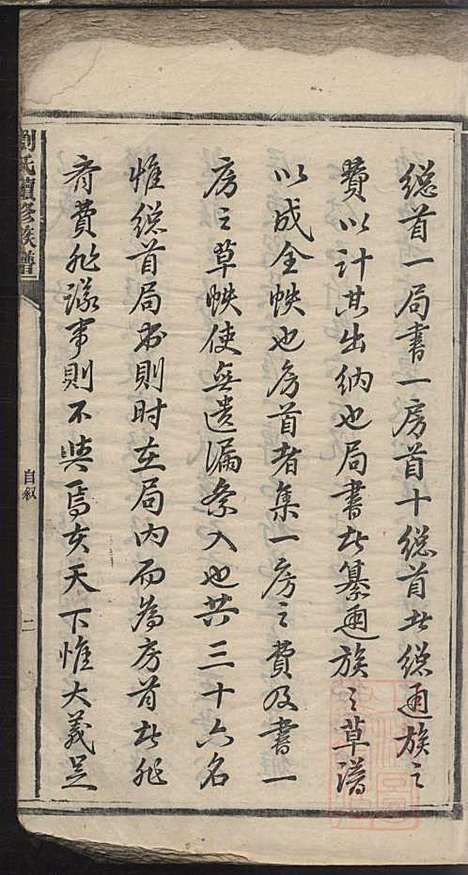 總首一局書一房首十總首者總通族之
費以計其出納也局書者纂通族之草譜
以成全帙也房首者集一房之費及書一
房之草帙使無遺漏參入也共三十六名
惟總首局書則時在局內而為房首者非
有費非議事則不與焉夫天下惟大義足
劉氏續修族譜
自叙
二